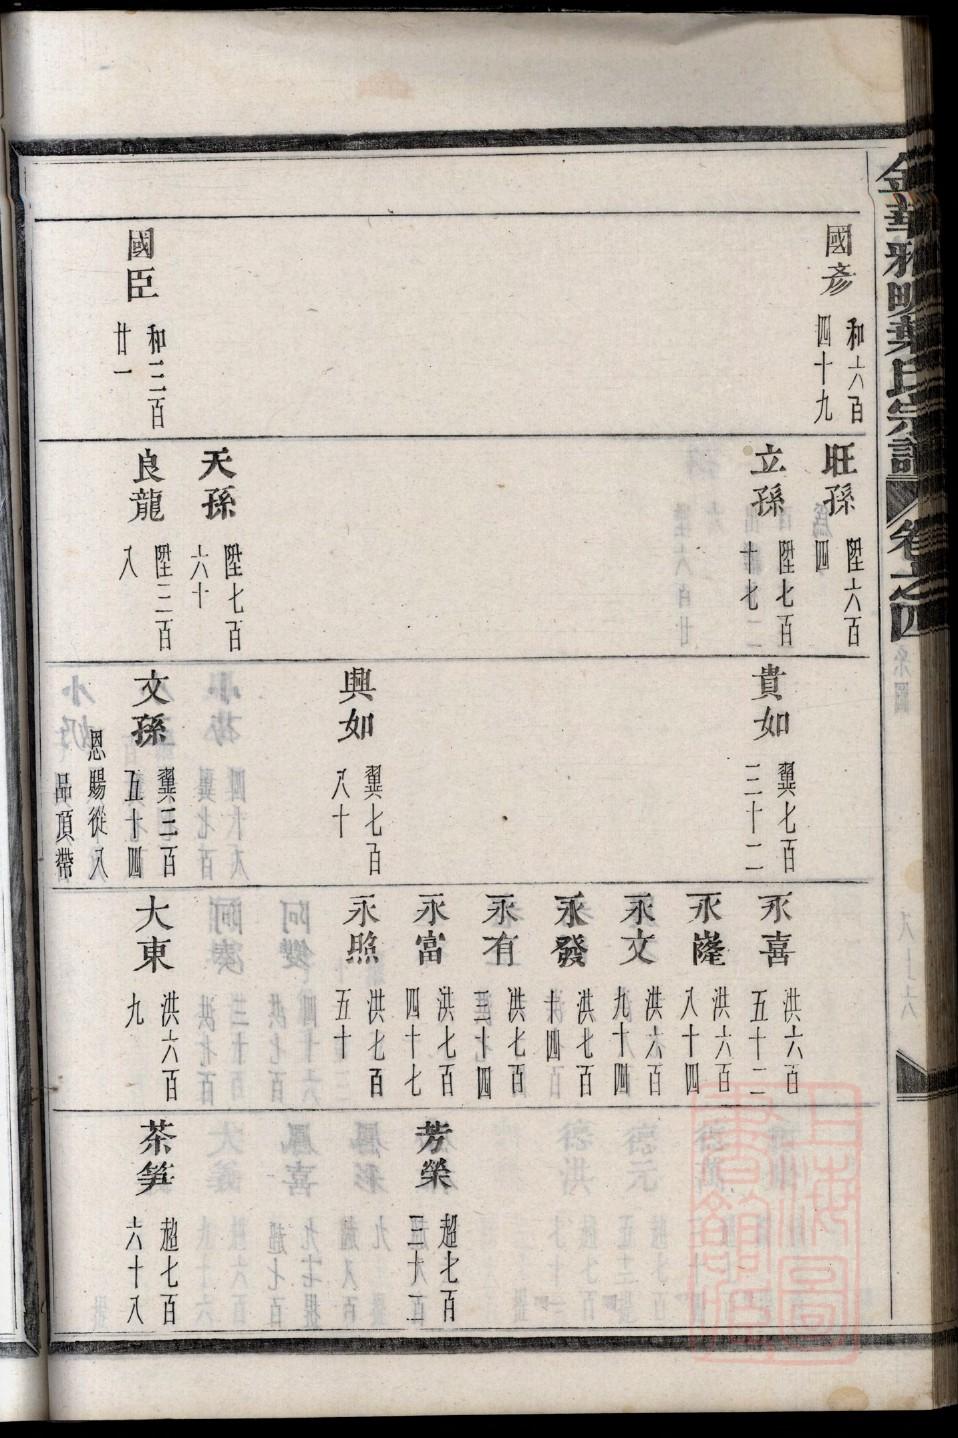 金華雅明葉氏宗譜 卷之四
國彥 和六百四十九
國臣 和三百廿一
旺孫 陞六百四
立孫 陞七百十七
天孫 陞七百六十
良龍 陞三百八
貴如 翼七百三十二
興如 翼七百八十
文孫 翼三百五十四
恩賜從八品頂帶
永喜 洪六百五十二
永隆 洪六百八十四
永文 洪六百九十四
永發 洪七百十四
永有 洪七百三十四
永富 洪七百四十七
永照 洪七百五十
大東 洪六百九
芳榮 超七百三十五
茶笋 超七百六十八